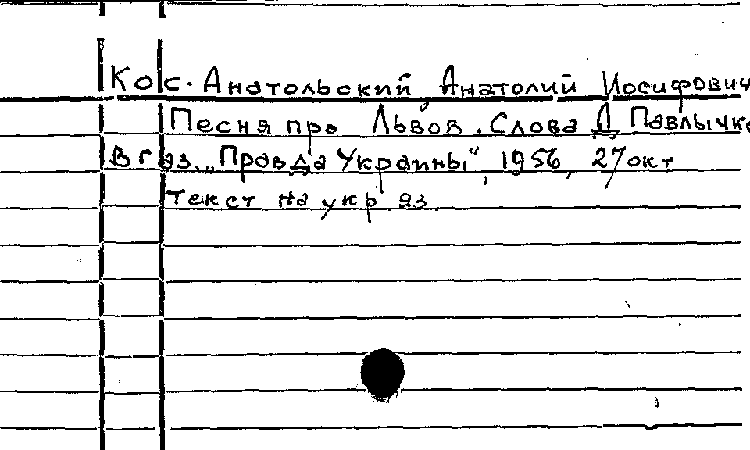 Кос-Анатольский Анатолий Иосифович
Песня про Львов. Слова Д Павлычко
В газ. „Правда Украины", 1956, 27 окт
Текст на укр яз.